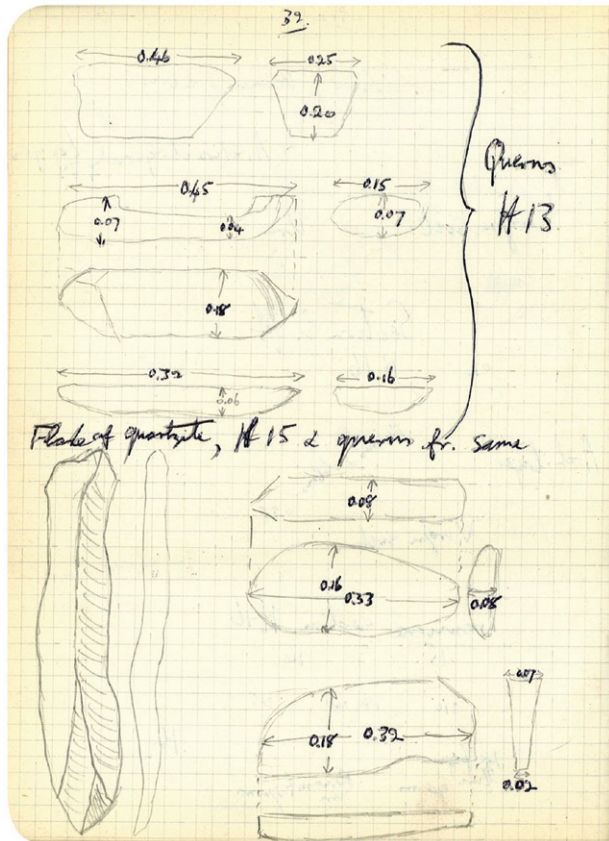 39.
0.46 0.25
0.20
Querns
H13
0.45 0.15
0.07 0.04 0.07
0.18
0.32 0.16
0.06
Flake of quartzite, H 15 & querns fr. same
0.08
0.16
0.33 0.08
0.07
0.18 0.32
0.02